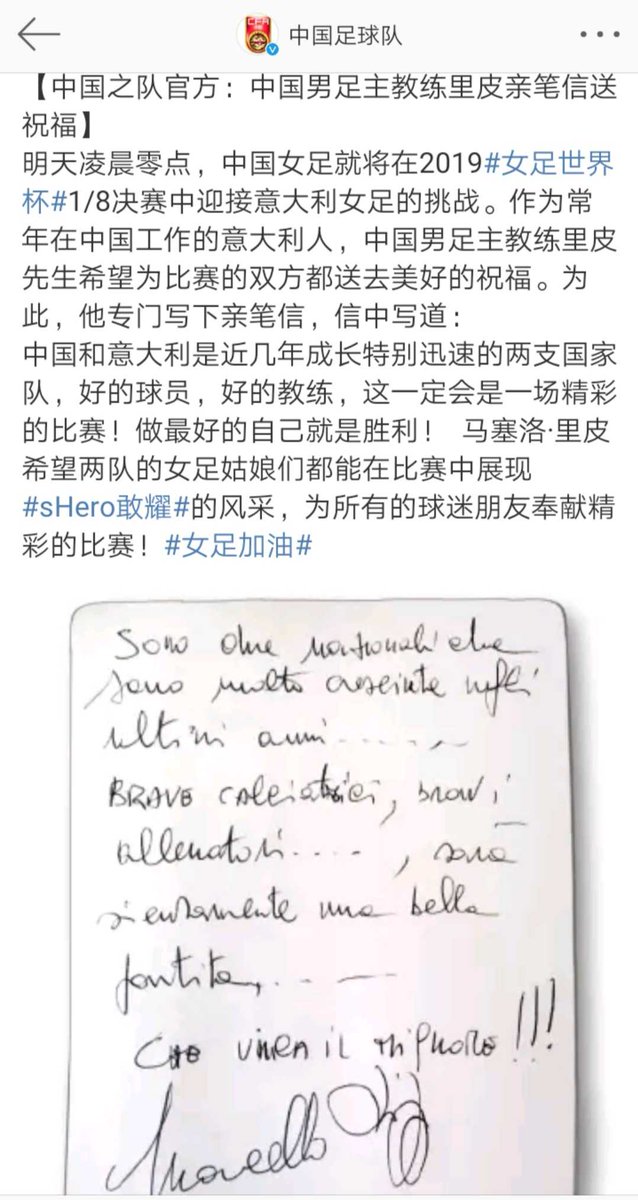 中国足球队
【中国之队官方：中国男足主教练里皮亲笔信送
祝福】
明天凌晨零点，中国女足就将在2019#女足世界
杯#1/8决赛中迎接意大利女足的挑战。作为常
年在中国工作的意大利人，中国男足主教练里皮
先生希望为比赛的双方都送去美好的祝福。为
此，他专门写下亲笔信，信中写道：
中国和意大利是近几年成长特别迅速的两支国家
队，好的球员，好的教练，这一定会是一场精彩
的比赛！做最好的自己就是胜利！ 马塞洛·里皮
希望两队的女足姑娘们都能在比赛中展现
#sHero敢耀#的风采，为所有的球迷朋友奉献精
彩的比赛！#女足加油#
Sono due nazionali che
sono molto cresciute negli
ultimi anni.......
BRAVE calciatrici, bravi
allenatori...., sarà
sicuramente una bella
partita,..
Che VINCA IL MIGLIORE!!!
Marcello Lippi